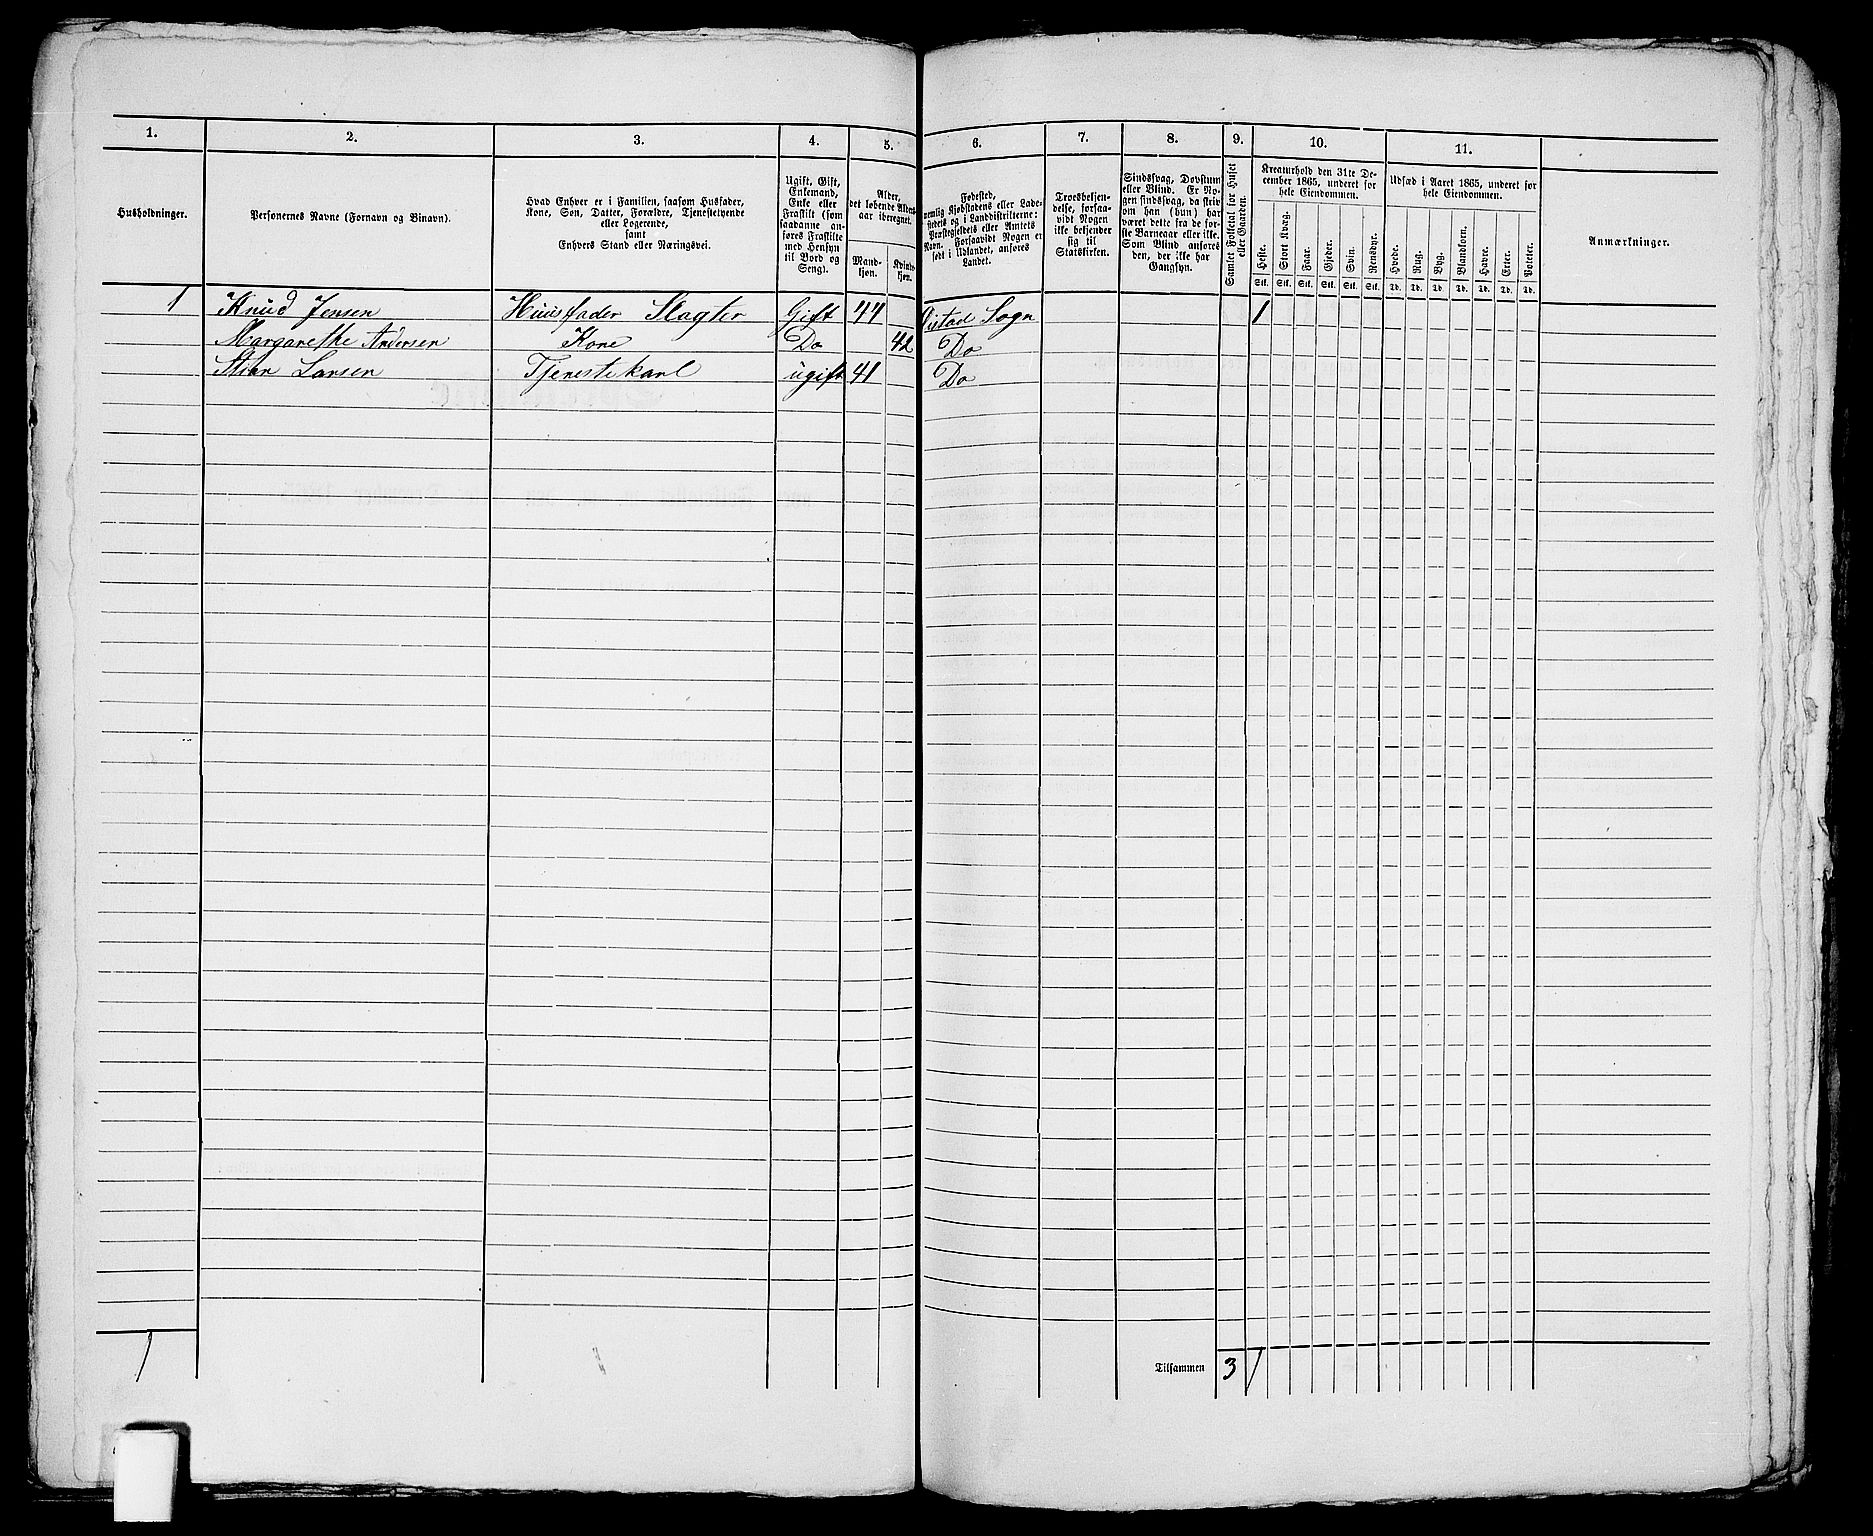 1. 2. 3. 4. 5. 6. 7. 8. 9. 10. 11.
Husholdninger.
Personernes Navne (Fornavn og Binavn).
Hvad Enhver er i Familien, saasom Husfader,
Kone, Søn, Datter, Forældre, Tjenestetyende
eller Logerende,
samt
Enhvers Stand eller Næringsvei.
Ugift, Gift,
Enkemand,
Enke eller
Fraskilt (som
saadanne an-
føres Fraskilte
med Hensyn
til Bord og
Seng).
Alder,
det løbende Alders-
aar iberegnet.
Mand-
kjøn.
Kvinde-
kjøn.
Fødested,
nemlig Kjøbstadens eller Lade-
stedets og i Landdistrikterne:
Præstegjeldets eller Amtets
Navn. Forsaavidt Nogen er
født i Udlandet, anføres
Landet.
Troesbekjen-
delse, forsaa-
vidt Nogen
ikke bekjender
sig til
Statskirken.
Sindssvag, Døvstum
eller Blind. Er No-
gen sindssvag, da skriv
om han (hun) har
været dette fra de før-
ste Barneaar eller ikke.
Som Blind anføres
den, der ikke har
Gangsyn.
Samlet Folketal for Huset
eller Gaarden.
Kreaturhold den 31te De-
cember 1865, underet for
hele Eiendommen.
Heste. Stort Kvæg. Faar. Gjeder. Svin. Rensdyr.
Stk. Stk. Stk. Stk. Stk. Stk.
Udsæd i Aaret 1865, underet for
hele Eiendommen.
Hvede. Rug. Byg. Blandkorn. Havre. Erter. Poteter.
Td. Td. Td. Td. Td. Td. Td.
Anmærkninger.
1 Knud Jensen Huusfader Slagter Gift 44 Øistad Sogn 1
Margarethe Andersen Kone Do 42 Do
Stian Larsen Tjenestekarl ugift 41 Do
1 Tilsammen 3 1